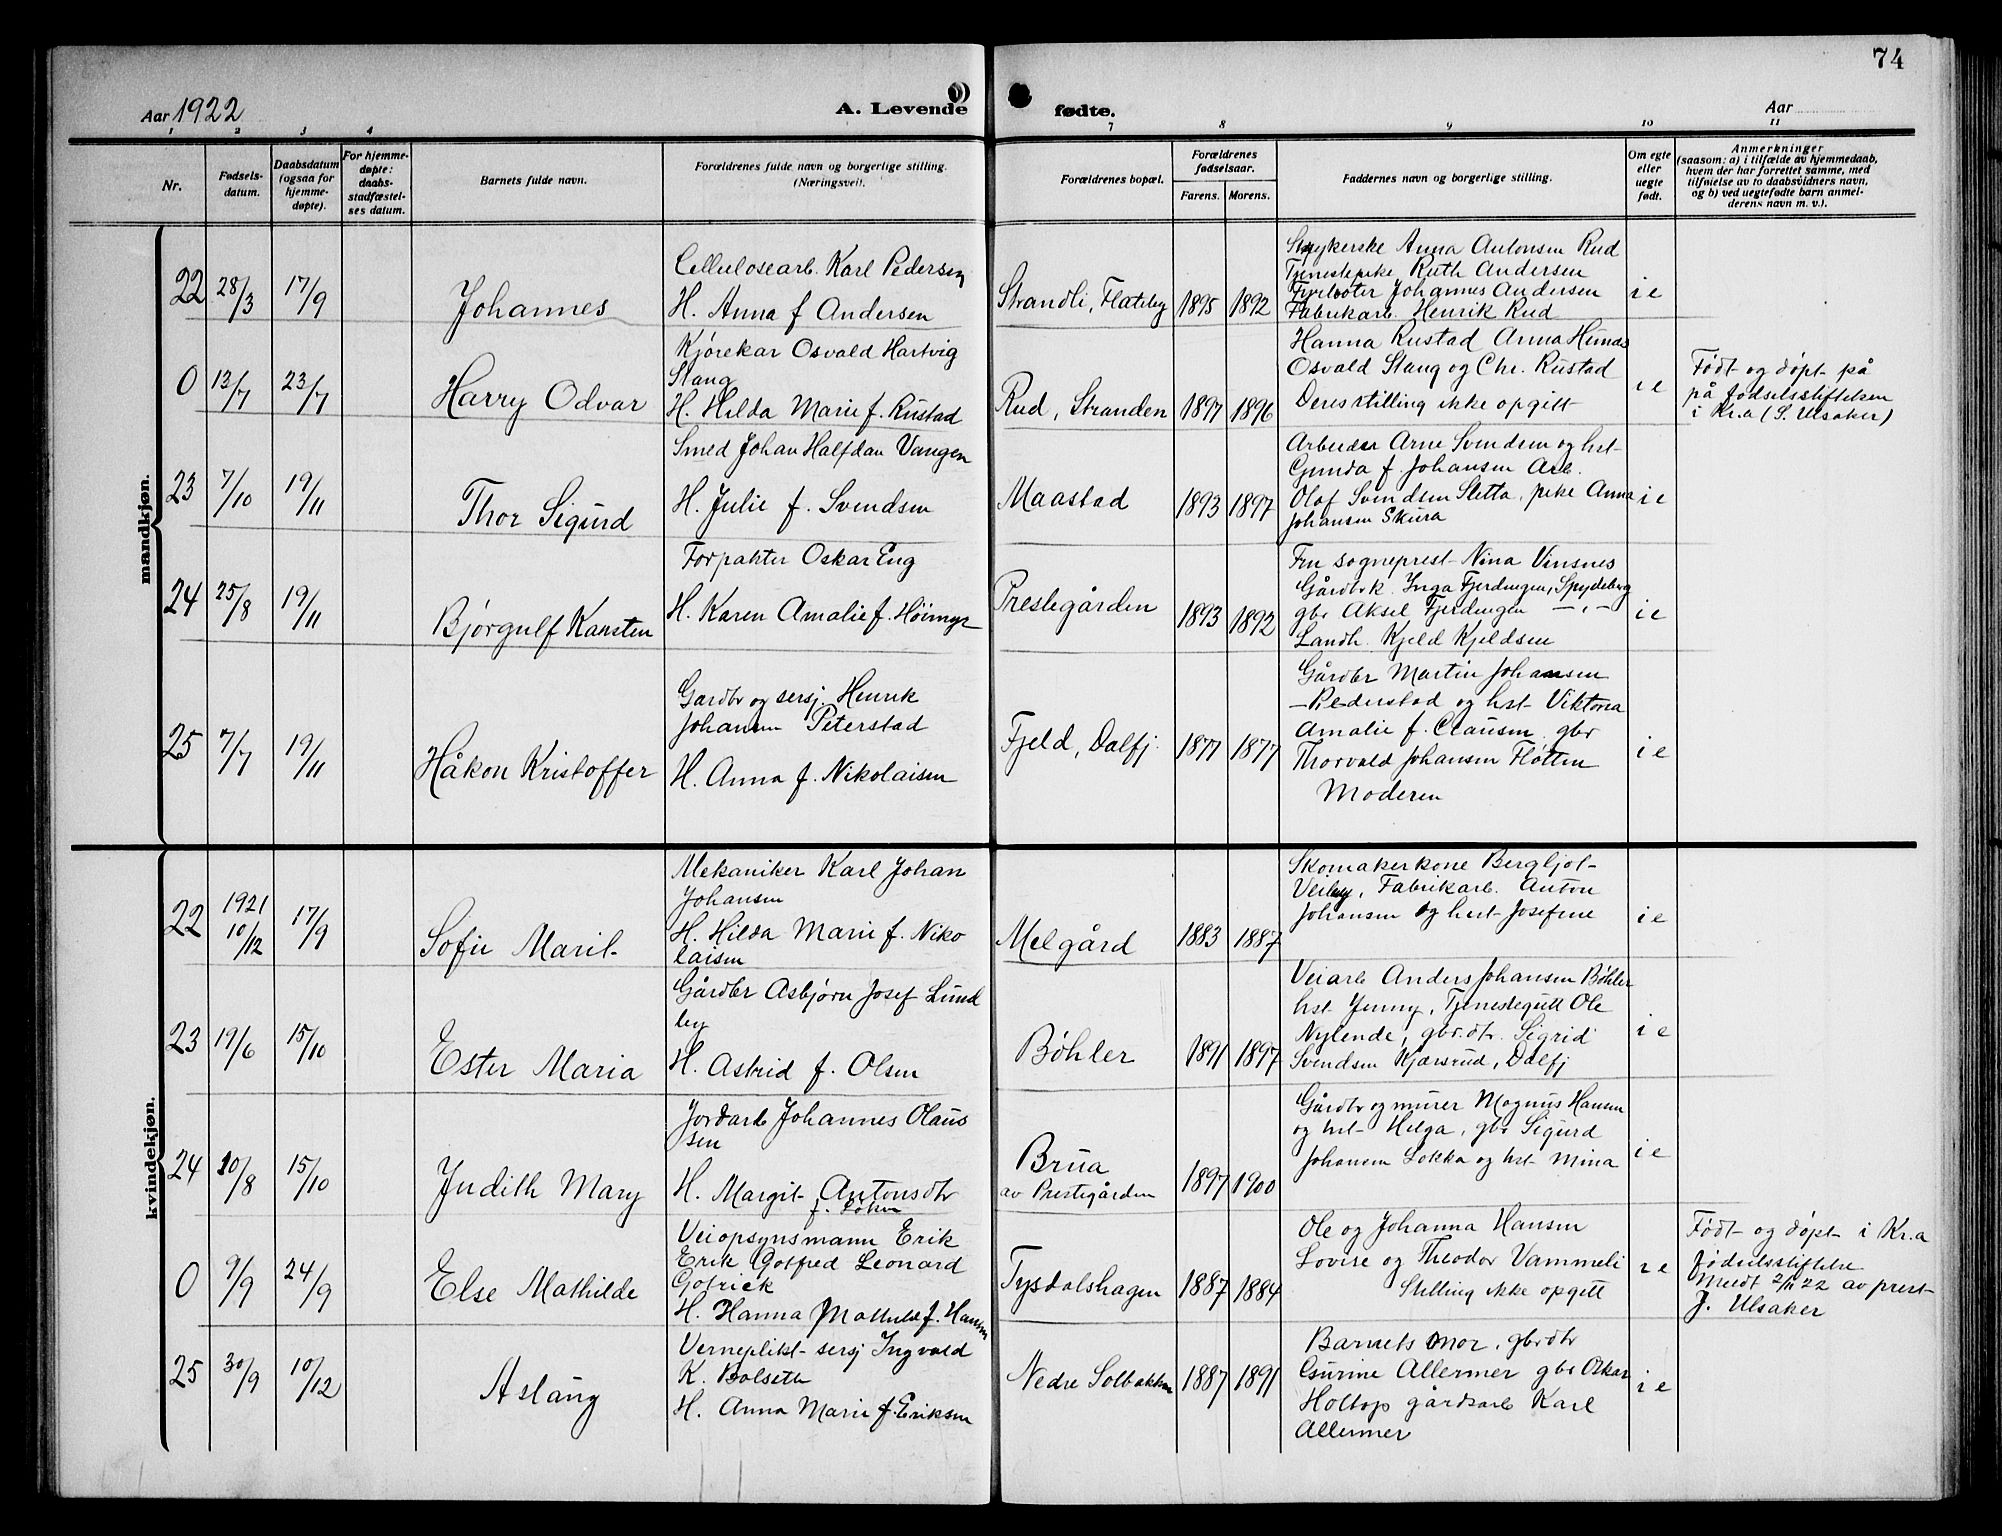 74
Aar 1922
A. Levende
fødte.
Aar
1 2 3 4 7 8 9 10 11
Nr.
Fødsels-
datum.
Daabsdatum
(ogsaa for
hjemme-
døpte).
For hjemme-
døpte:
daabs-
stadfæstel-
ses datum.
Barnets fulde navn.
Forældrenes fulde navn og borgerlige stilling.
(Næringsvei).
Forældrenes bopæl.
Forældrenes
fødselsaar.
Farens. Morens.
Faddernes navn og borgerlige stilling.
Om egte
eller
uegte
født.
Anmerkninger
(saasom: a) i tilfælde av hjemmedaab,
hvem der har forrettet samme, med
tilføielse av to daabsvidners navn,
og b) ved uegtefødte barn anmel-
derens navn m. v.).
mandkjøn.
22 28/3 17/9
Johannes
Cellulosearb. Karl Pedersen
H. Anna f Andersen
Strandli, Flateby
1895 1892
Anna Antonsen Rud
Tjenestepike Ruth Andersen
Fyrbøter Johannes Andersen
Fabrikarb. Henrik Rud
i e
0 13/7 23/7
Harry Odvar
Kjørekar Osvald Hartvig
Stang
H. Hilda Marie f. Rustad
Rud, Stranden
1897 1896
Hanna Rustad Anna Hunæs
Osvald Stang og Chr. Rustad
Deres stilling ikke opgitt
i e
Født og døpt på
på fødselsstiftelsen
i Kr.a (S. Ulsaker)
23 7/10 19/11
Thor Sigurd
Smed Johan Halfdan Vangen
H. Julie f. Svendsen
Maastad
1893 1897
Arbeider Arne Svendsen og hst
Gunda f. Johansen Arb.
Olaf Svendsen Sletta, pike Anna
Johansen Skura
i e
24 25/8 19/11
Bjørgulf Karsten
Forpakter Oskar Eng
H. Karen Amalie f. Høimyr
Prestegården
1893 1892
Fru sogneprest Nina Vinsnes
Gårdbrk. Inga Fjerdingen, Spydeberg
gbr Aksel Fjerdingen — „ —
Landh. Kjeld Kjeldsen
i e
25 7/7 19/11
Håkon Kristoffer
Gardbr og sersj. Henrik
Johansen Peterstad
H. Anna f. Nikolaisen
Fjeld, Dalfj.
1877 1877
Gårdbr Martin Johansen
Pederstad og hst Viktoria
Amalie f. Clausen gbr
Thorvald Johansen Fløtten
Moderen
i e
kvindekjøn.
22 1921 10/12 17/9
Sofie Marit
Mekaniker Karl Johan
Johansen
H. Hilda Marie f. Niko
laisen
Melgård
1883 1887
Skomakerkone Bergljot
Veiby, Fabrikarb. Anton
Johansen og hst Josefine
i e
23 19/6 15/10
Ester Maria
Gårdbr Asbjørn Josef Lund
by
H. Astrid f. Olsen
Bøhler
1891 1897
Veiarb Anders Johansen Bøhler
hst Jenny, Tjenestegutt Ole
Nylende, gbr.dtr. Sigrid
Svendsen Kjærsrud, Dalfj
i e
24 10/8 15/10
Judith Mary
Jordarb Johannes Olaus
sen
H. Margit Antonsdtr
Brua
av Prestegården
1897 1900
Gårdbr og murer Magnus Hansen
og hst Helga, gbr Sigurd
Johansen Løkka og hst Mina
i e
0 9/9 24/9
Else Mathilde
Veiopsynsmann Erik
Erik Gotfred Leonard
Gotrick
H. Hanna Mathilde f. Hansen
Tysdalshagen
1887 1884
Ole og Johanna Hansen
Lovise og Theodor Vammeli
Stilling ikke opgitt
i e
Født og døpt i Kr.a
fødselsstiftelse
Meldt 2/11 22 av prest
J. Ulsaker
25 30/9 10/12
Aslaug
Verneplikt sersj Ingvald
K. Bolseth
H. Anna Marie f. Eriksen
Nedre Solbakken
1887 1891
Barnets mor, gbrdtr
Gurine Allermer gbr Oskar
Holtop gårdsarb Karl
Allermer
i e